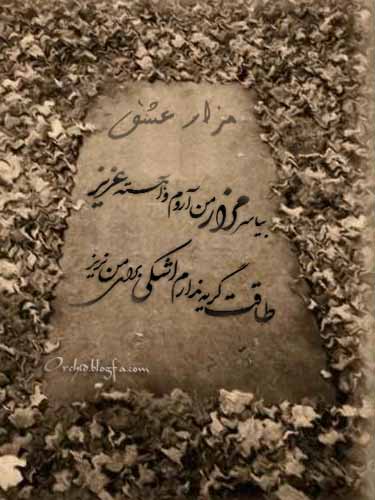 مزار عشق
بیا سر مزار من آروم و آهسته عزیز
طاقت گریه ندارم اشکی برای من نریز
Orchid.blogfa.com